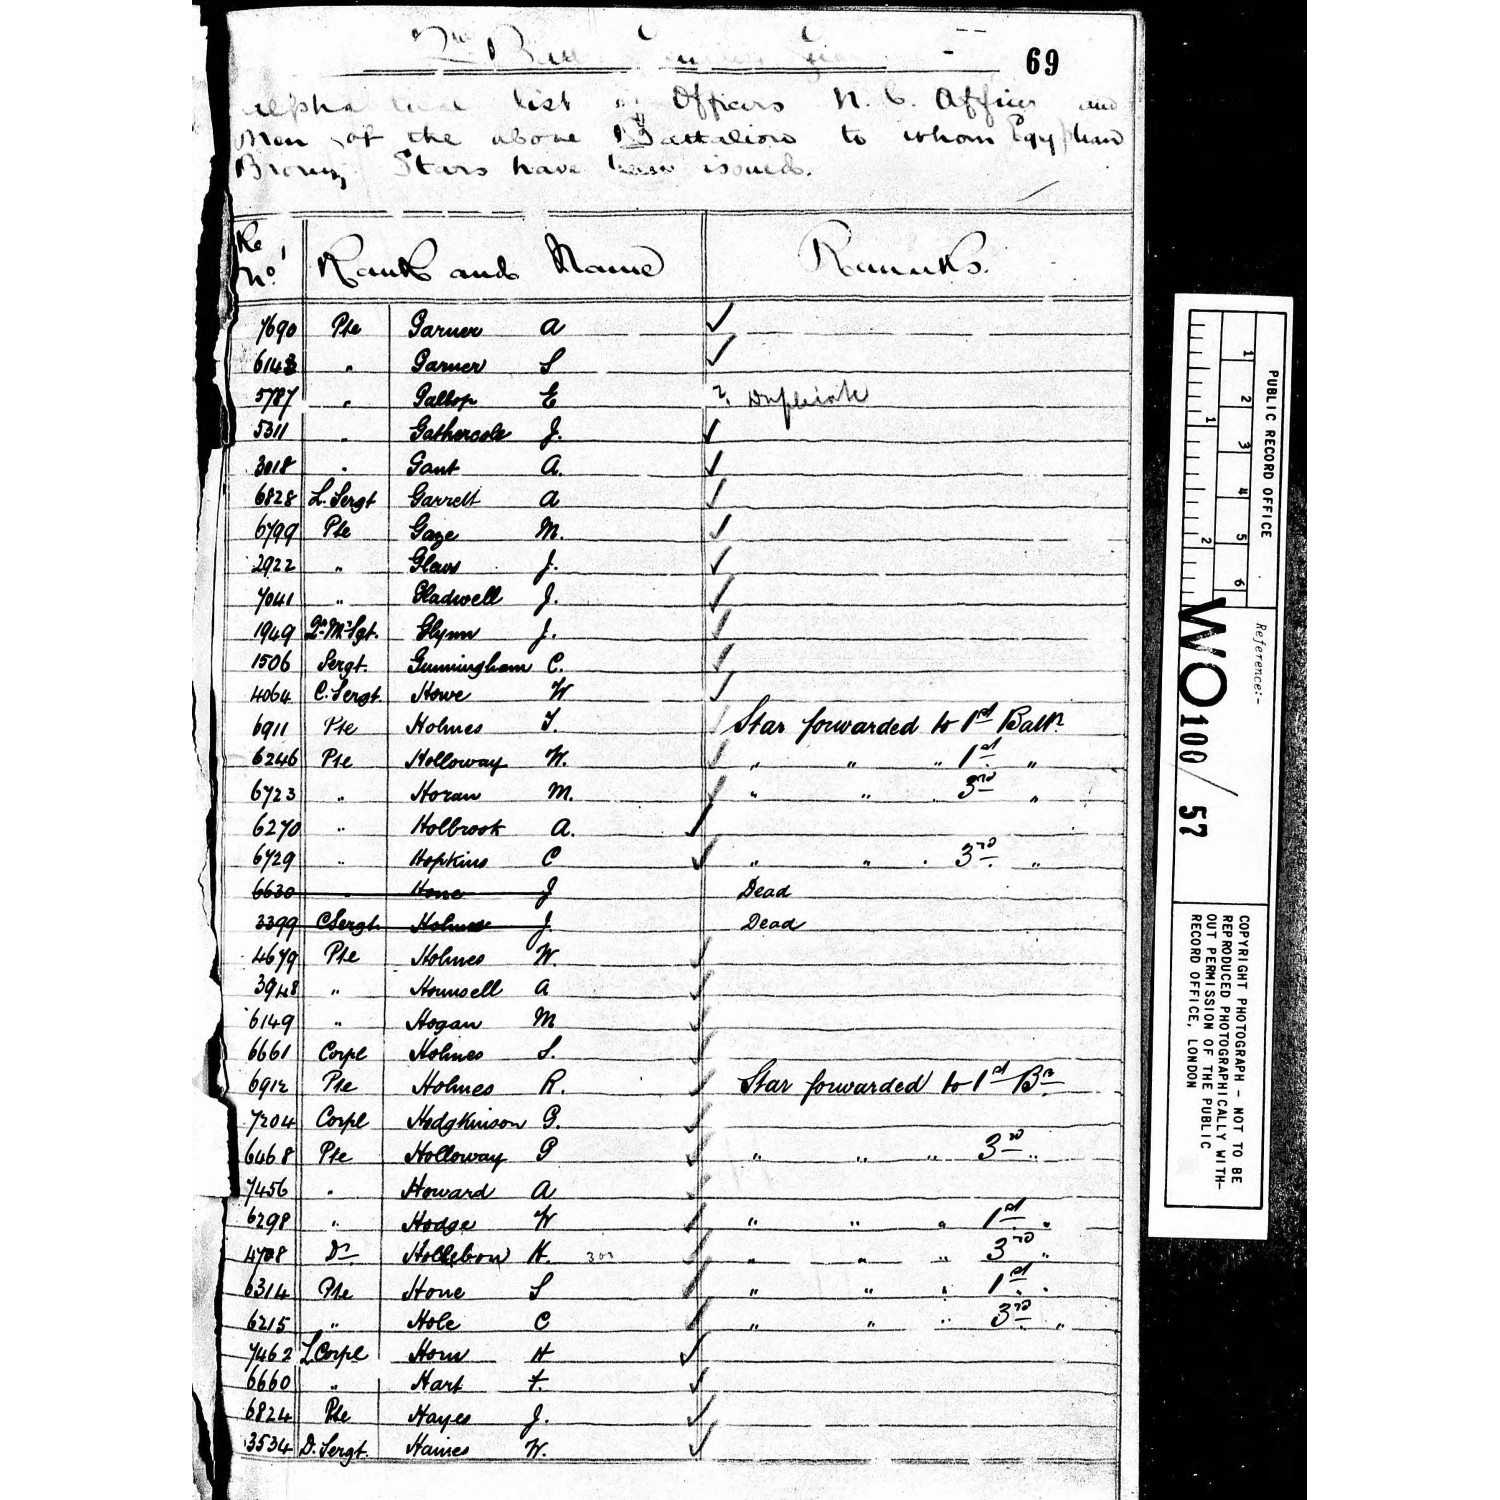 69
list Officers N. C. Officers and
Men of the above Battalion to whom Egyptian
Bronze Stars have been issued.
Re
No. Rank and Name Remarks.
7690 Pte Garner A ✓
6143 " Garner S ✓
5787 " Galtop E ? Duplicate
5311 " Gathercole J. ✓
3018 " Gant A. ✓
6828 L. Sergt Garrett A ✓
6799 Pte Gaze M. ✓
2922 " J. ✓
7041 " Gladwell J. ✓
1949 Qr. Mr. Sgt. Glynn J. ✓
1506 Sergt. Gunningham C. ✓
4064 C. Sergt. Howe W ✓
6911 Pte Holmes T. Star forwarded to 1st Battn.
6246 Pte Holloway W. ✓ " " " 1st "
6723 " Horan M. ✓ " " " 3rd "
6270 " Holbrook A. ✓
6729 " Hopkins C ✓ " " " 3rd. "
6630 " Hone J Dead
3399 C Sergt. Holmes J Dead
4679 Pte Holmes W. ✓
3948 " Hounsell A ✓
6149 " Hogan M ✓
6661 Corpl Holmes S. ✓
6912 Pte Holmes R. ✓ Star forwarded to 1st Bn.
7204 Corpl Hodgkinson G. ✓
6468 Pte Holloway G ✓ " " " 3rd "
7456 " Howard A ✓
6298 " Hodge W ✓ " " " 1st "
4708 Dr Hollebon H. 300 ✓ " " " 3rd "
6314 Pte Hone S ✓ " " " 1st "
6215 " Hole C ✓ " " " 3rd "
7462 L Corpl Horn H ✓
6660 " Hart F. ✓
6824 Pte Hayes J. ✓
3534 D. Sergt. Haines W. ✓
PUBLIC RECORD OFFICE
1 2 3 4 5 6
1 2
Reference:-
WO 100 / 57
COPYRIGHT PHOTOGRAPH - NOT TO BE
REPRODUCED PHOTOGRAPHICALLY WITH-
OUT PERMISSION OF THE PUBLIC
RECORD OFFICE, LONDON